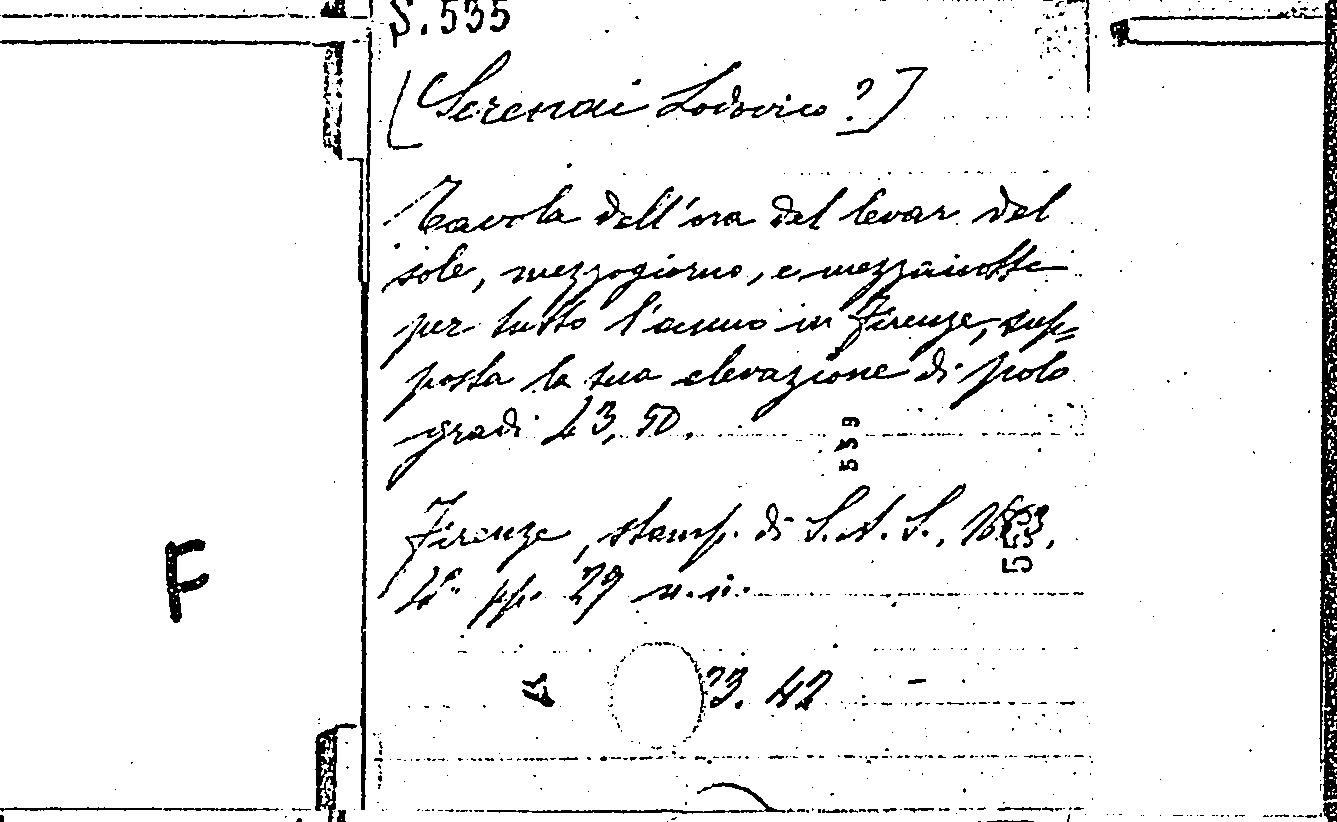 S. 535
[Serenai Lodovico?]
Tavola dell'ora del levar del
sole, mezzogiorno, e mezzanotte
per tutto l'anno in Firenze, sup=
posta la sua elevazione di polo
gradi 43, 50.
559
Firenze, stamp. di S.A.S.,
4° pp. 29 n.n.
F
33. 42 -